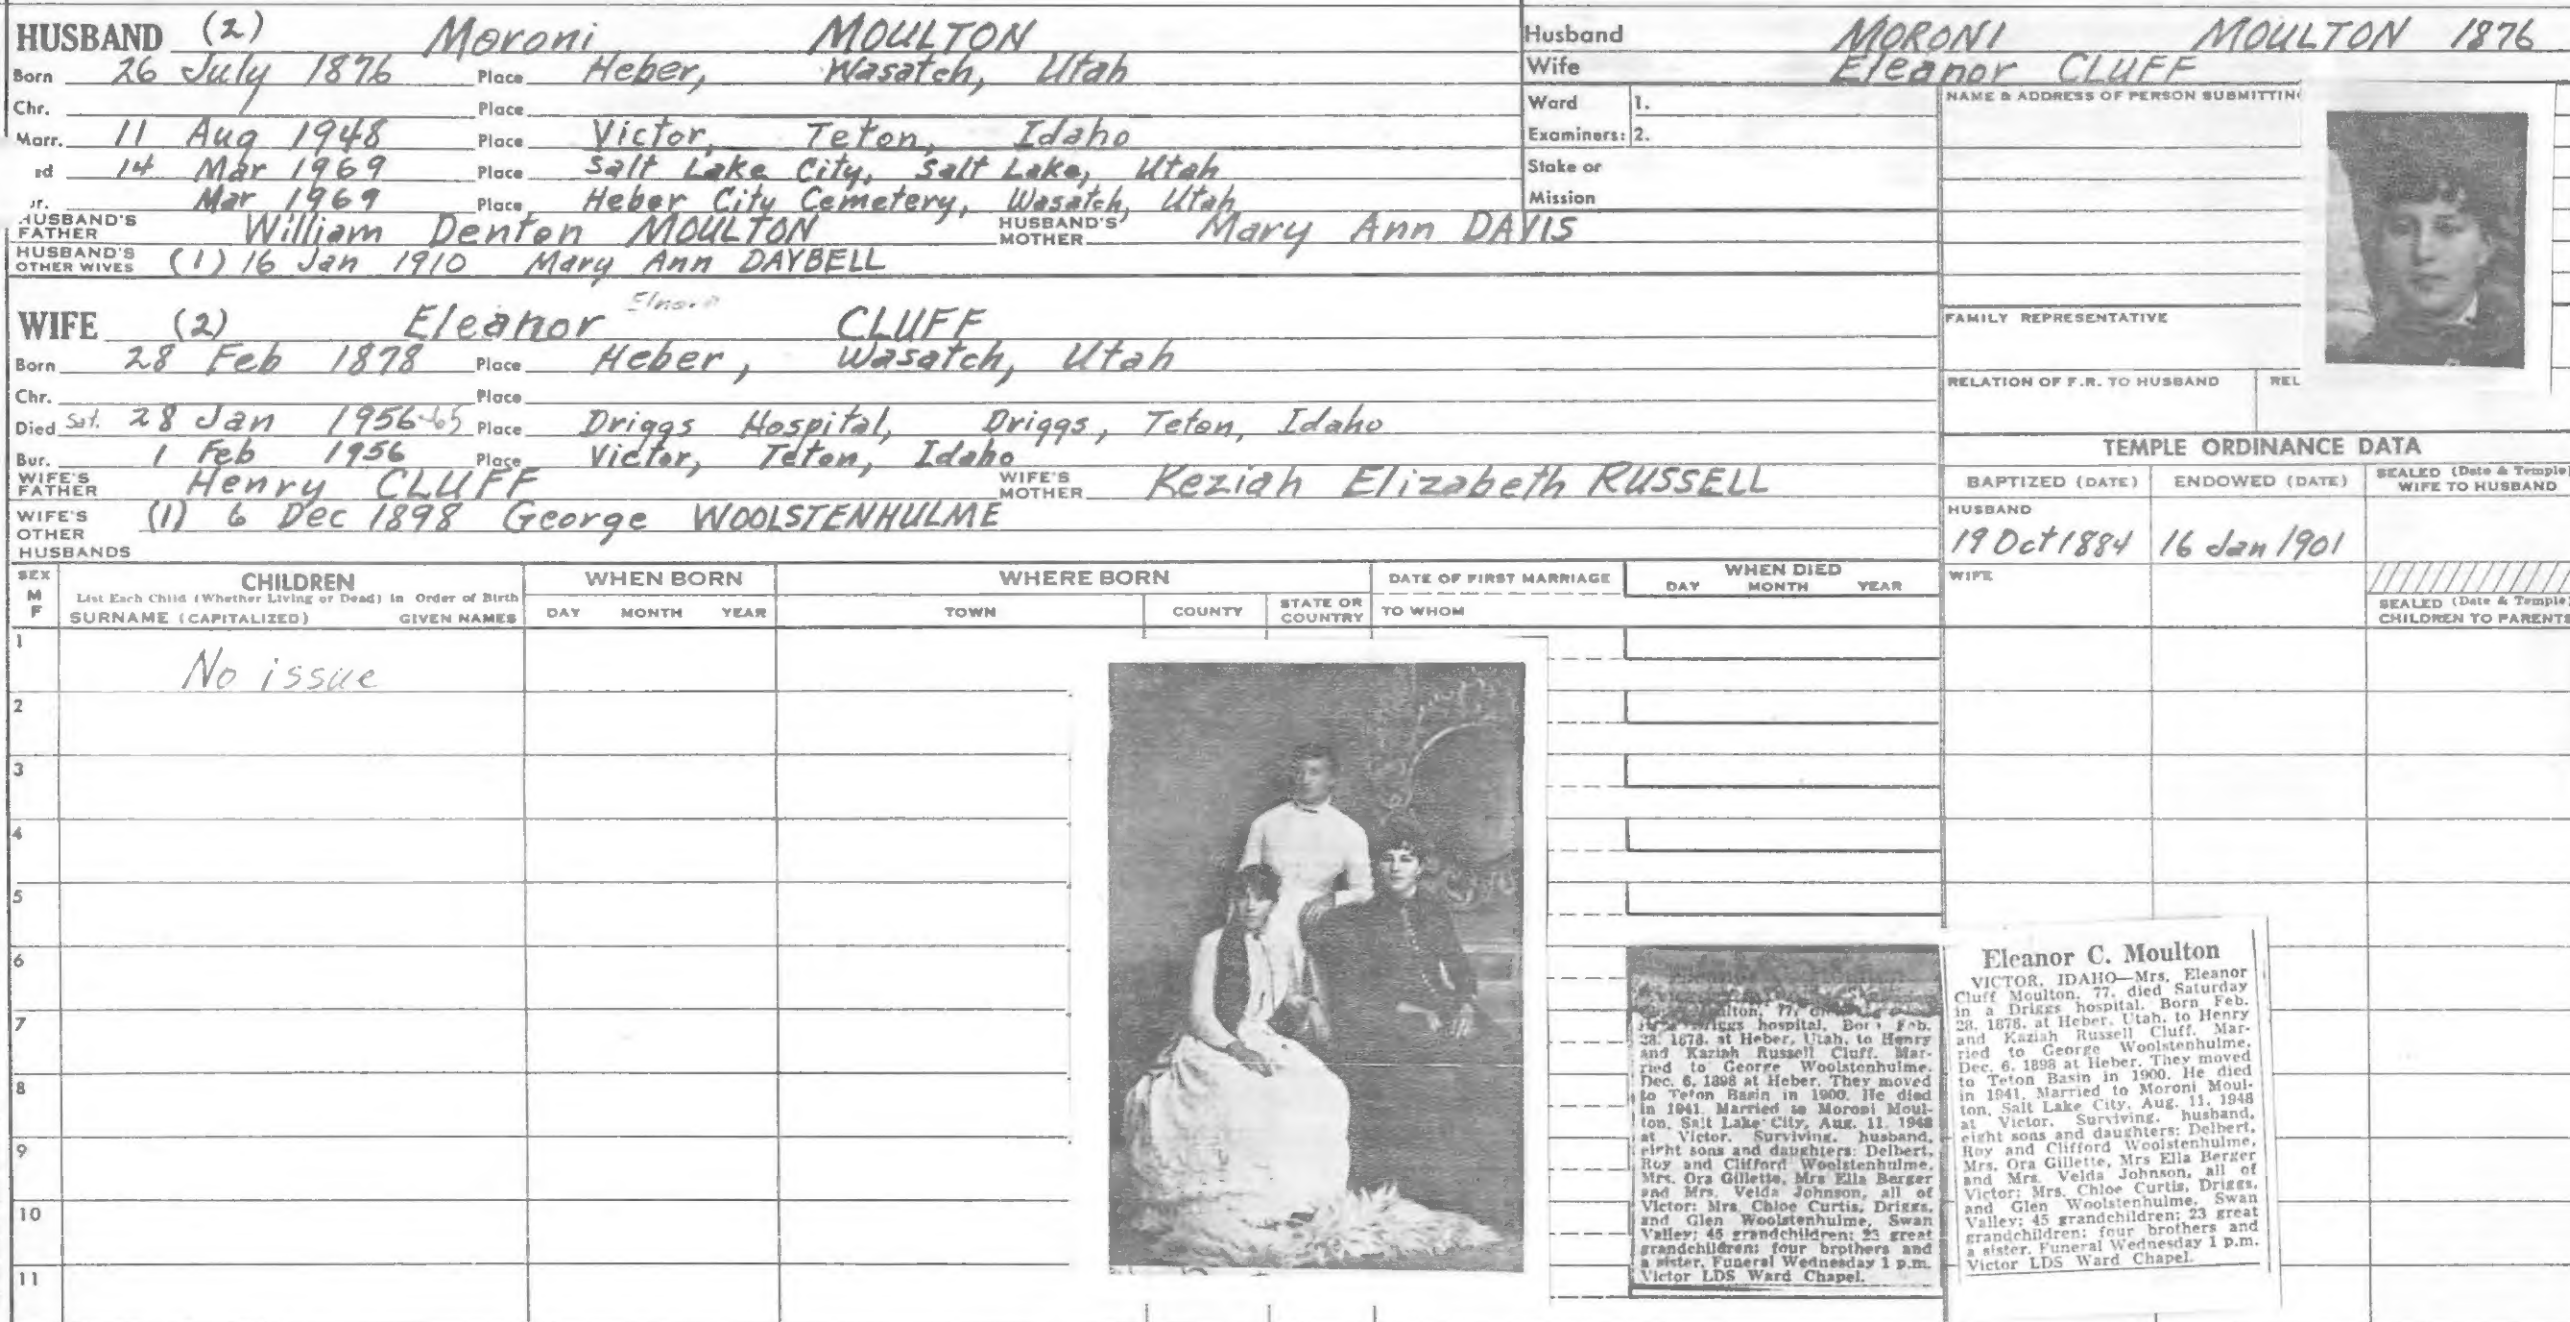 HUSBAND (2) Moroni MOULTON
Born 26 July 1876 Place Heber, Wasatch, Utah
Chr. Place
Marr. 11 Aug 1948 Place Victor, Teton, Idaho
ed 14 Mar 1969 Place Salt Lake City, Salt Lake, Utah
ur. Mar 1969 Place Heber City Cemetery, Wasatch, Utah
HUSBAND'S FATHER William Denton MOULTON HUSBAND'S MOTHER Mary Ann DAVIS
HUSBAND'S OTHER WIVES (1) 16 Jan 1910 Mary Ann DAYBELL
WIFE (2) Eleanor Elnora CLUFF
Born 28 Feb 1878 Place Heber, Wasatch, Utah
Chr. Place
Died Sat. 28 Jan 1956 Place Driggs Hospital, Driggs, Teton, Idaho
Bur. 1 Feb 1956 Place Victor, Teton, Idaho
WIFE'S FATHER Henry CLUFF WIFE'S MOTHER Keziah Elizabeth RUSSELL
WIFE'S OTHER HUSBANDS (1) 6 Dec 1898 George WOOLSTENHULME
Husband MORONI MOULTON 1876
Wife Eleanor CLUFF
Ward 1.
Examiners: 2.
Stake or
Mission
NAME & ADDRESS OF PERSON SUBMITTING
FAMILY REPRESENTATIVE
RELATION OF F.R. TO HUSBAND REL
TEMPLE ORDINANCE DATA
BAPTIZED (DATE) ENDOWED (DATE) SEALED (Date & Temple) WIFE TO HUSBAND
HUSBAND
19 Oct 1884 16 Jan 1901
WIFE
SEALED (Date & Temple) CHILDREN TO PARENTS
SEX M F
CHILDREN
List Each Child (Whether Living or Dead) in Order of Birth
SURNAME (CAPITALIZED) GIVEN NAMES
WHEN BORN
DAY MONTH YEAR
WHERE BORN
TOWN COUNTY STATE OR COUNTRY
DATE OF FIRST MARRIAGE
TO WHOM
WHEN DIED
DAY MONTH YEAR
1 No issue
2
3
4
5
6
7
8
9
10
11
Moulton, 77,
Driggs hospital. Born Feb.
28, 1878, at Heber, Utah, to Henry
and Kaziah Russell Cluff. Mar-
ried to George Woolstenhulme,
Dec. 6, 1898 at Heber. They moved
to Teton Basin in 1900. He died
in 1941. Married to Moroni Moul-
ton, Salt Lake City, Aug. 11, 1948
at Victor. Surviving, husband,
eight sons and daughters: Delbert,
Roy and Clifford Woolstenhulme,
Mrs. Ora Gillette, Mrs Ella Berger
and Mrs. Velda Johnson, all of
Victor; Mrs. Chloe Curtis, Driggs,
and Glen Woolstenhulme, Swan
Valley; 45 grandchildren; 23 great
grandchildren; four brothers and
a sister. Funeral Wednesday 1 p.m.
Victor LDS Ward Chapel.
Eleanor C. Moulton
VICTOR, IDAHO—Mrs. Eleanor
Cluff Moulton, 77, died Saturday
in a Driggs hospital. Born Feb.
28, 1878, at Heber, Utah, to Henry
and Kaziah Russell Cluff. Mar-
ried to George Woolstenhulme,
Dec. 6, 1898 at Heber. They moved
to Teton Basin in 1900. He died
in 1941. Married to Moroni Moul-
ton, Salt Lake City, Aug. 11, 1948
at Victor. Surviving, husband,
eight sons and daughters: Delbert,
Roy and Clifford Woolstenhulme,
Mrs. Ora Gillette, Mrs Ella Berger
and Mrs. Velda Johnson, all of
Victor; Mrs. Chloe Curtis, Driggs,
and Glen Woolstenhulme, Swan
Valley; 45 grandchildren; 23 great
grandchildren; four brothers and
a sister. Funeral Wednesday 1 p.m.
Victor LDS Ward Chapel.